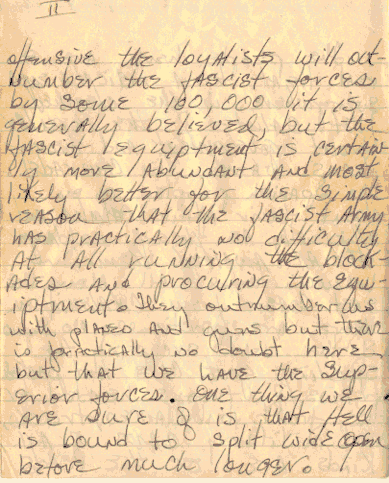 II
offensive the loyalists will out-
number the fascist forces
by some 160,000 it is
generally believed, but the
fascist equiptment is certain
ly more abundant and most
likely better for the simple
reason that the fascist army
has practically no difficulty
at all running the block-
ades and procuring the equ-
iptment. They outnumber us
with planes and guns but there
is practically no doubt here
but that we have the sup-
erior forces. One thing we
are sure of is that Hell
is bound to split wide open
before much longer.